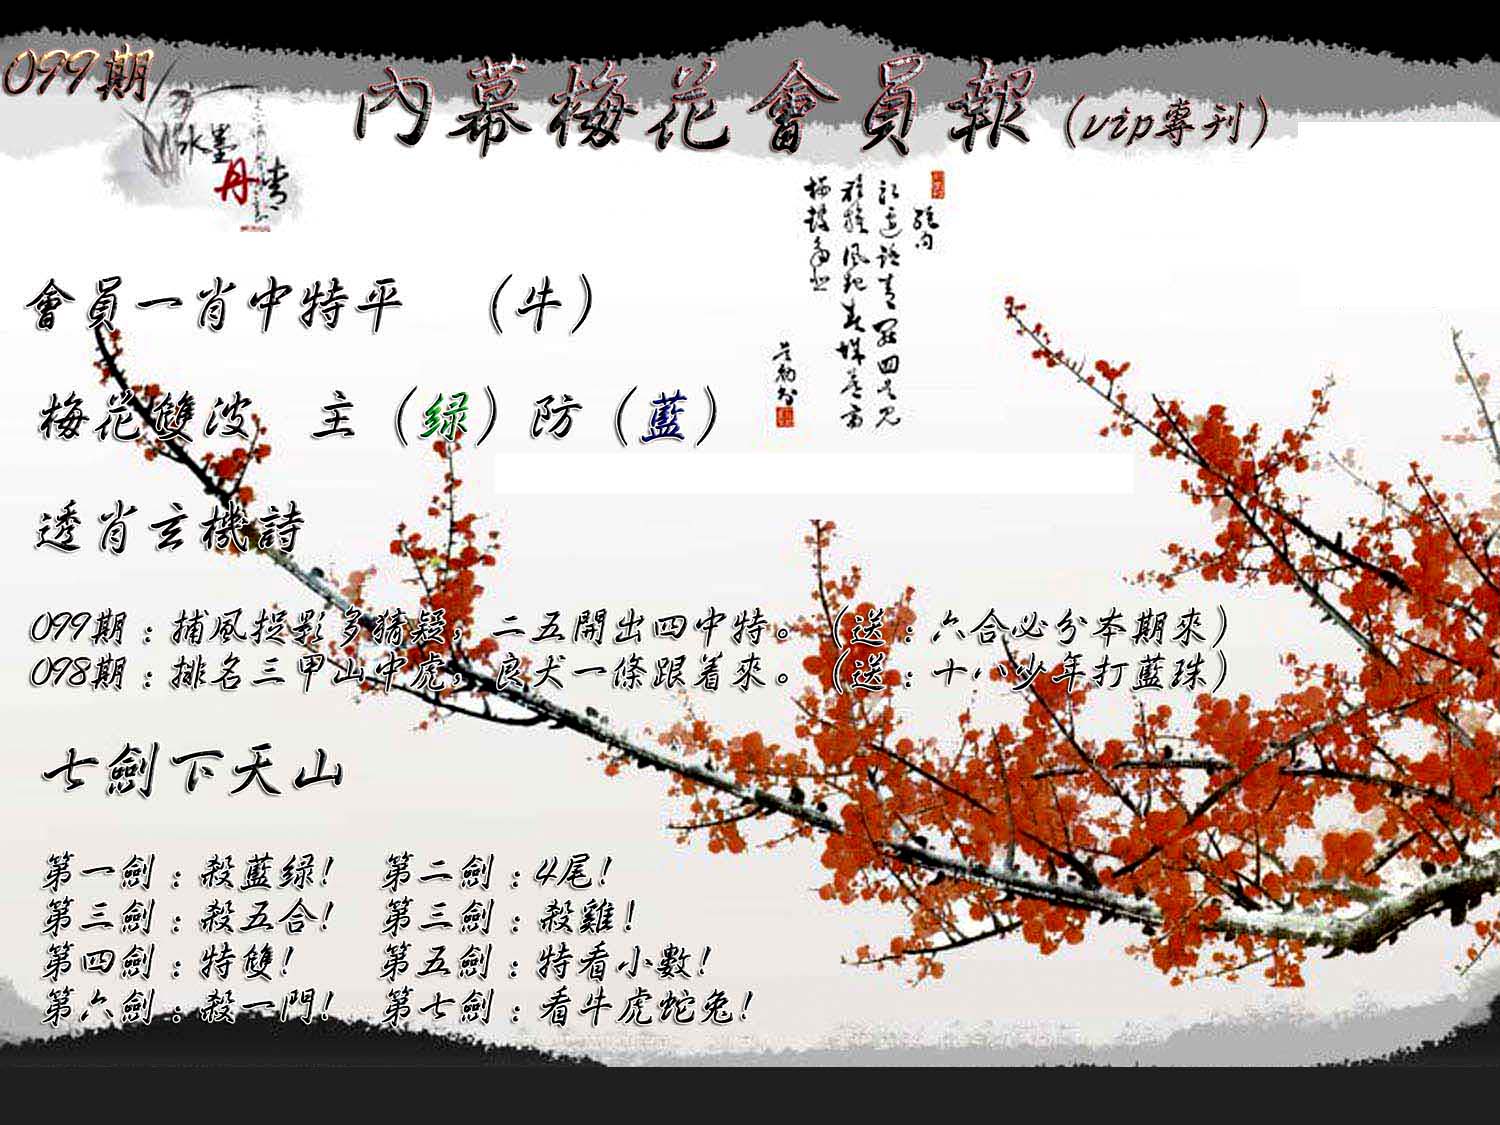 099期
內幕梅花會員報（vip專刊）
水墨
丹青
會員一肖中特平 （牛）
梅花雙波 主（绿）防（藍）
透肖玄機詩
099期：捕風捉影多猜疑，二五開出四中特。（送：六合必分本期來）
098期：排名三甲山中虎，良犬一條跟着來。（送：十八少年打藍珠）
七劍下天山
第一劍：殺藍绿！ 第二劍：4尾！
第三劍：殺五合！ 第三劍：殺雞！
第四劍：特雙！ 第五劍：特看小數！
第六劍：殺一門！ 第七劍：看牛虎蛇兔！